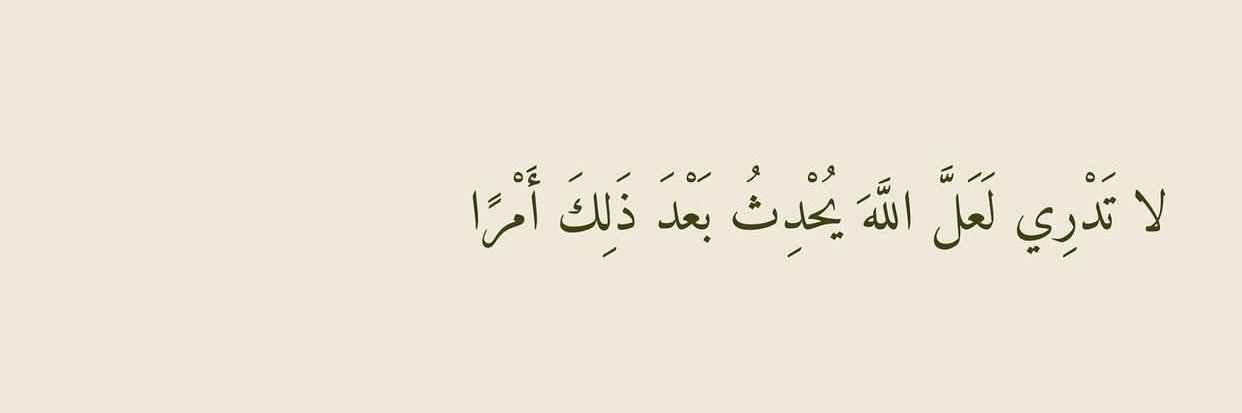 لا تَدْرِي لَعَلَّ اللَّهَ يُحْدِثُ بَعْدَ ذَلِكَ أَمْرًا